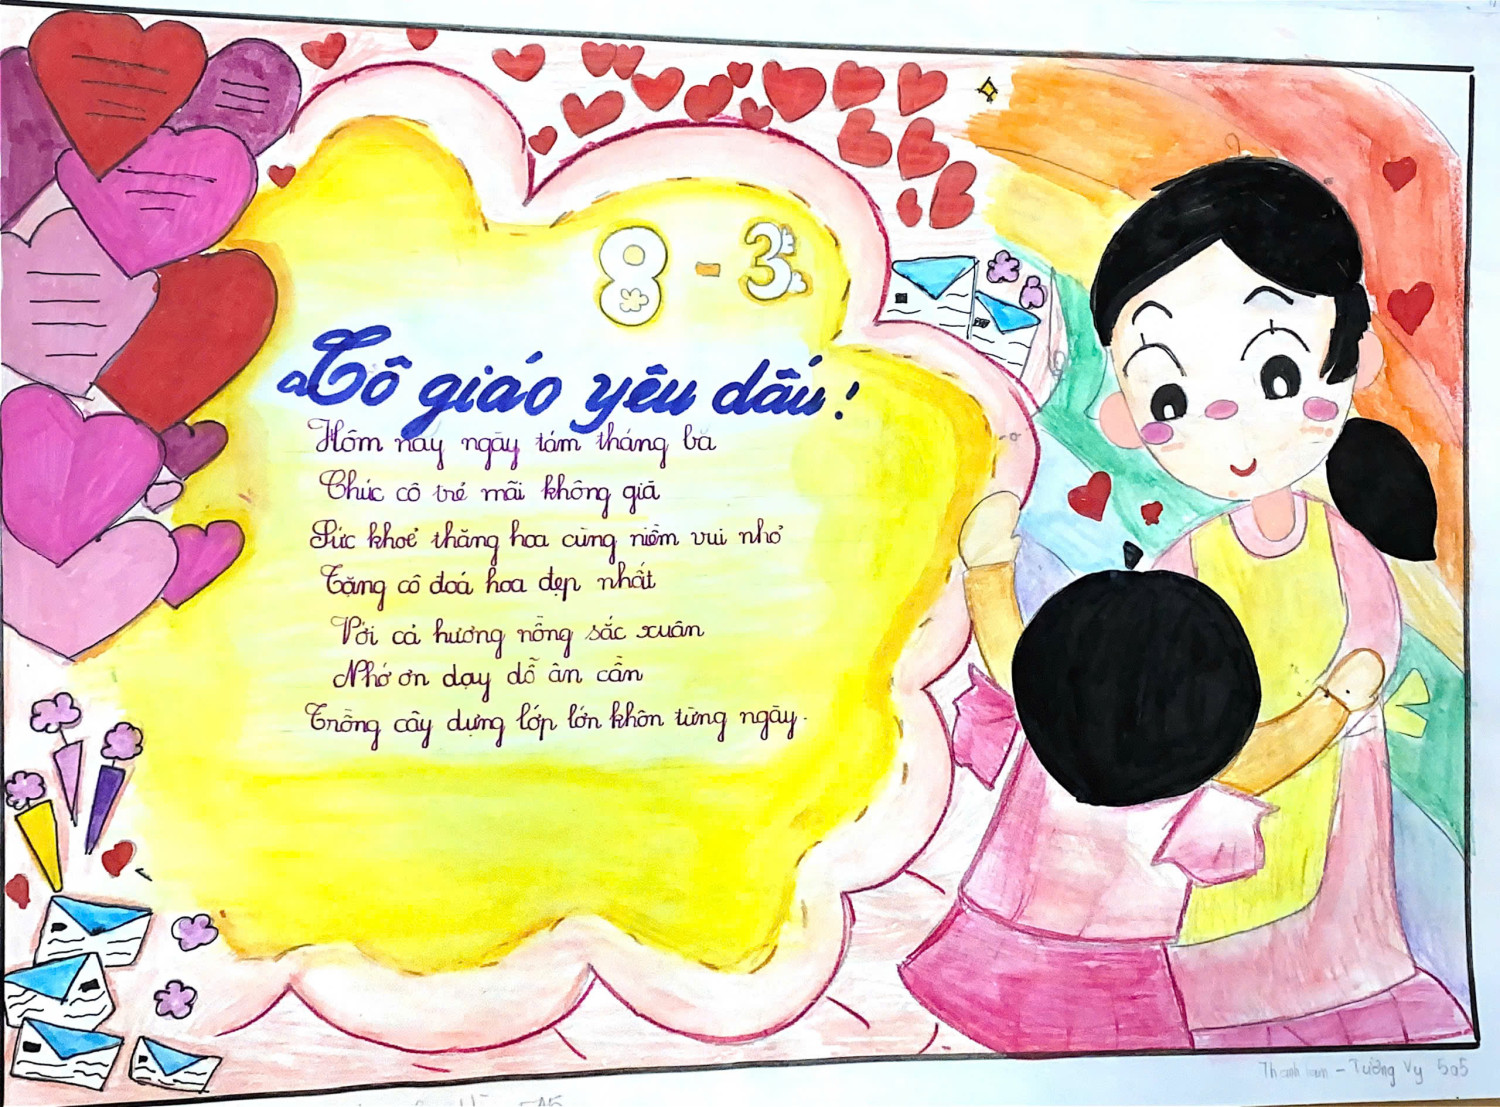 8-3
Cô giáo yêu dấu!
Hôm nay ngày tám tháng ba
Chúc cô trẻ mãi không già
Sức khoẻ thăng hoa cùng niềm vui nhỏ
Tặng cô đoá hoa đẹp nhất
Với cả hương nồng sắc xuân
Nhớ ơn dạy dỗ ân cần
Trồng cây dựng lớp lớn khôn từng ngày.
Tường Vy 5a5